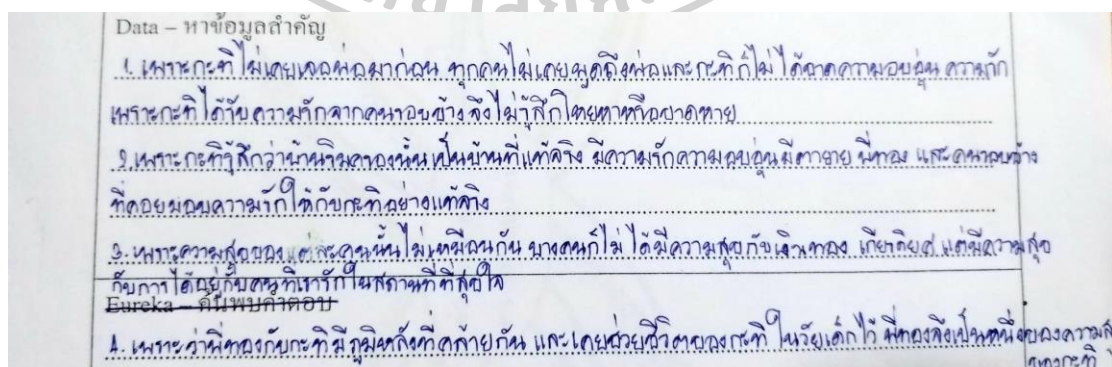 Data – หาข้อมูลสำคัญ
1. เพราะกะทิไม่เคยเจอพ่อมาก่อน ทุกคนไม่เคยพูดถึงพ่อและกะทิก็ไม่ได้ขาดความอบอุ่น ความรัก
เพราะกะทิได้รับความรักจากคนรอบข้างจึงไม่รู้สึกโหยหาหรือขาดหาย
2. เพราะกะทิรู้สึกว่าบ้านริมคลองนั้นเป็นบ้านที่แท้จริง มีความรักความอบอุ่นมีตายาย พี่ทอง และคนรอบข้าง
ที่คอยมอบความรักให้กับกะทิอย่างแท้จริง
3. เพราะความสุขของแต่ละคนนั้นไม่เหมือนกัน บางคนก็ไม่ได้มีความสุขกับเงินทอง เกียรติยศ แต่มีความสุข
กับการได้อยู่กับคนที่เรารักในสถานที่ที่สุขใจ
Eureka – ค้นพบคำตอบ
4. เพราะว่าพี่ทองกับกะทิมีภูมิหลังที่คล้ายกัน และเคยช่วยชีวิตของกะทิในวัยเด็กไว้ พี่ทองจึงเป็นหนึ่งของความสุ
ของกะทิ